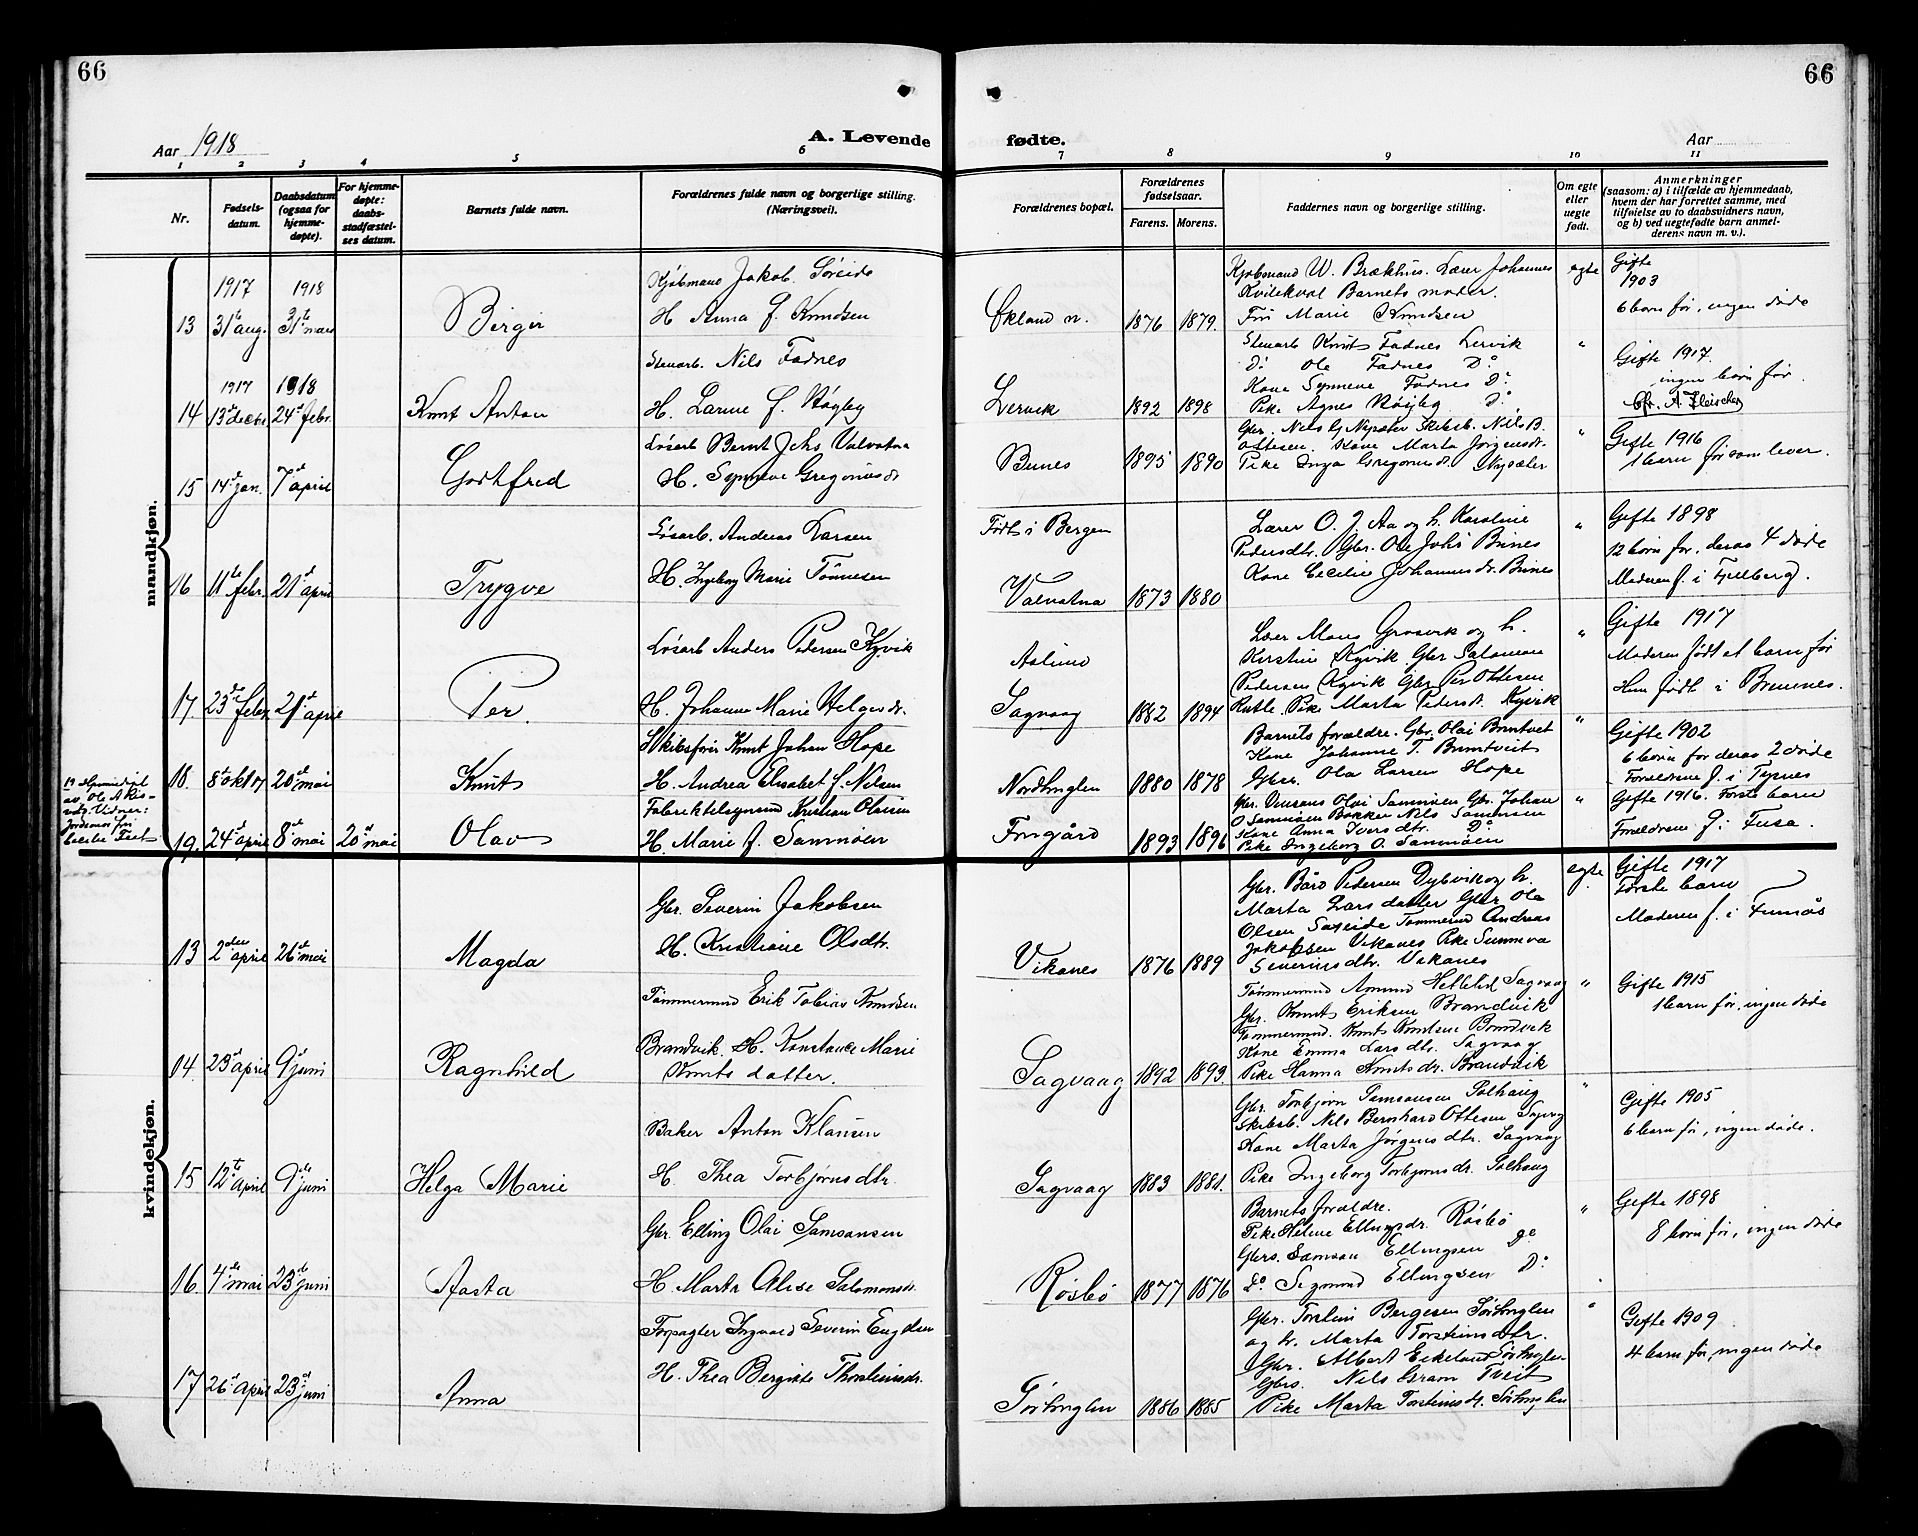 66
66
Aar 1918
A. Levende
fødte.
Aar
1 2 3 4 5 6 7 8 9 10 11
Nr.
Fødsels-
datum.
Daabsdatum
(ogsaa for
hjemme-
døpte).
For hjemme-
døpte:
daabs-
stadfæstel-
ses datum.
Barnets fulde navn.
Forældrenes fulde navn og borgerlige stilling.
(Næringsvei).
Forældrenes bopæl.
Forældrenes
fødselsaar.
Farens. Morens.
Faddernes navn og borgerlige stilling.
Om egte
eller
uegte
født.
Anmerkninger
(saasom: a) i tilfælde av hjemmedaab,
hvem der har forrettet samme, med
tilføielse av to daabsvidners navn,
og b) ved uegtefødte barn anmel-
derens navn m. v.).
mandkjøn.
1917 1918
13 31te aug. 31te mars
Birger
Kjøbmand Jakob Søreide
H Anna f. Knudsen
Økland n. 1876 1879.
Kjøbmand W. Brækhus. Lærer Johannes
Kvilekval Barnets moder.
Frü Marie Knudsen
egte
Gifte
1903
6 born før, ingen døde
1917 1918
14 13de decbr 24de febr.
Knut Anton
Stuarb. Nils Fadnes
H. Larine f. Høgby
Lervik 1892 1898
Stuearb Knut Fadnes Lervik
Do Ole Fadnes Do
Kone Synneve Fadnes Do
Pike Agnes Do
"
Gifte 1917.
ingen born før.
Chr. A. Fleischer
15 14de jan. 7de april
Gothfred
Løsarb Bernt Johs Valvatna
H. Synneve Gregoriusdr
Bunes 1895 1890
Gbr. Nils G Nysæter Skibsb. Nils B.
Ottesen. Kone Marta Jørgensdr.
Pike Inga Gregoriusdr. Nysæter
"
Gifte 1916
1 barn før som lever.
16 11te febr. 21de april
Trygve
Løsarb. Andreas Larsen
H. Ingeborg Marie Tönnesen
Født i Bergen
Valvatna 1873 1880
Lærer O. J. Aa og h. Karoline
Pedersdtr. Gbr. Ole Johs Bunes
Kone Cecilie Johannesdr. Bunes
"
Gifte 1898
12 born før, deraf 4 døde
Moderen f. i Fjelberg.
17. 23de febr. 21de april
Per.
Løsarb Anders Pedersen Kyvik
H. Johanne Marie Helgesdr.
Aslund
Sagvaag 1882 1894
Lærer Mons Grosvik og h.
Kirstine Kyvik Gbr Salomon
Pedersen Kyvik Gbr Per Ottesen
Rutle. Pike Marta Pedersdr. Kyvik
"
Gifte 1917
Moderen født et barn før
Hun født i Bremnes.
18. 8de okt 17 20de mai
Knut
Skibsfører Knut Johan Hope
H. Andrea Elisabet f. Nilsen
Nordhuglen 1880 1878
Barnets forældre. Gbr. Olai Bruntveit
Kone Johanne T. Brunntveit
Gbr. Ola Larsen Hope
"
Gifte 1902
6 born før deraf 2 døde
Forældrene f. i Tysnes
Cecilie Tvet
19. 24de april 8de mai 20de mai
Olav
Kristian Olausen
H. Marie f. Samnøen
1893 1896
Gbr. Olai Samnøen Gbr. Johan
O Samnøen Bakker Nils Samnøen
Kone Anna Iversdtr. Do
Pike Ingeborg O. Samnøen
"
Gifte 1916. Første barn
Forældrene f. i Fusa.
kvindekjøn.
13 2den april 26de mai
Magda
Gbr. Severin Jakobsen
H. Kristiane Olsdtr.
Vikanes 1876 1889
Gbr. Bård Pedersen Dybvik og h.
Marta Larsdatter Gbr Ola
Olsen Søreide Tømmermd Andreas
Jakobsen Vikanes Pike Sunneva
Severinsdtr. Vikanes
egte
Gifte 1917
Første barn
Moderen f. i Finnås
14. 23de april 9de juni
Ragnhild
Tømmermd Erik Tobias Knudsen
Brandvik. H. Konstance Marie
Knuts datter.
Sagvaag 1892 1893
Tømmermd Amund Sagvaag
Gbr. Knut Eriksen Brandvik
Tømmermd. Knut Knutsen Brandvik
Kone Emma Larsdtr. Sagvaag
Pike Hanna Knutsdr. Brandvik
"
Gifte 1915
1 barn før, ingen døde
15 12te april 9de juni
Helga Marie
Baker Anton Klausen
H. Thea Torbjørnsdtr.
Sagvaag 1883 1881.
Gbr. Torbjørn Samsonsen Solhaug
Skibsb. Nils Bernhard Ottesen Sagvag
Kone Marta Jørgensdtr. Sagvaag
Pike Ingeborg Torbjørnsdr. Solhaug
"
Gifte 1905
6 barn før, ingen døde.
16. 4de mai 23de juni
Aasta
Gbr. Elling Olai Samsonsen
H. Marta Alise Salomonsdr.
Røsbø 1877 1876
Barnets forældre.
Pike Helene Ellingsdr. Røsbø
Gbrs. Samson Ellingsen Do
Do Sigmund Ellingsen Do
"
Gifte 1898
8 born før, ingen døde
17 26de april 23de juni
Anna
Forpagter Ingvald Severin Eugdsen
H. Thea Bergitte Thorsteinsdr.
Sörhuglen 1886 1885
Gbr. Torstein Bergesen Sörhuglen
og h. Marta Torsteinsdtr.
Gbr. Albert Eikeland Sörhuglen
Gbrs. Nils Gram Tveit
Pike Marta Torsteinsdr. Sörhuglen
"
Gifte 1909.
4 barn før, ingen døde